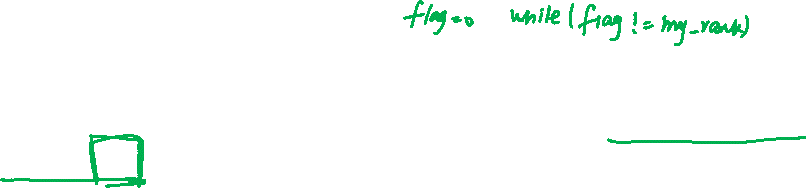 flag=0 while(flag != my_rank)